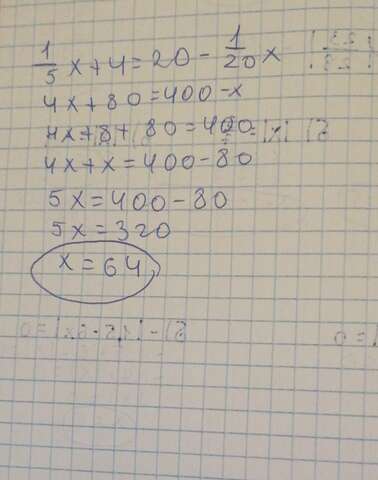 1/5 x + 4 = 20 - 1/20 x
4x + 80 = 400 - x
4x + 80 = 400
4x + x = 400 - 80
5x = 400 - 80
5x = 320
x = 64